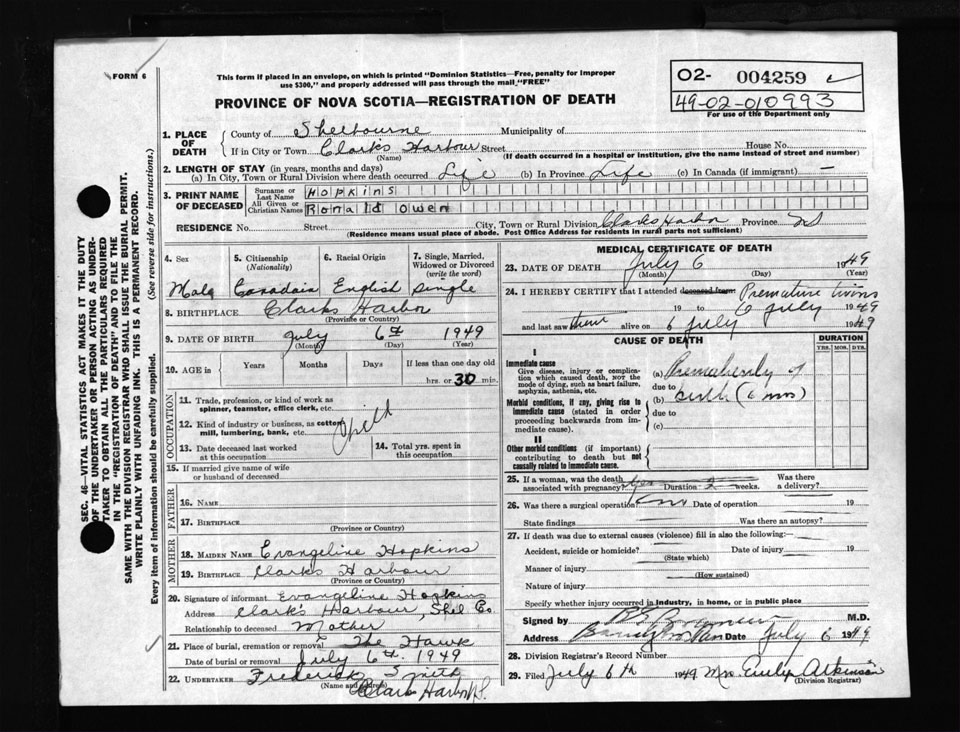 FORM 6
This form if placed in an envelope, on which is printed "Dominion Statistics—Free, penalty for improper
use $300," and properly addressed will pass through the mail "FREE"
O2- 004259
49-02-010993
For use of the Department only
PROVINCE OF NOVA SCOTIA—REGISTRATION OF DEATH
1. PLACE OF DEATH
County of Shelbourne Municipality of
If in City or Town Clark's Harbour Street House No.
(Name) (If death occurred in a hospital or institution, give the name instead of street and number)
2. LENGTH OF STAY (in years, months and days)
(a) In City, Town or Rural Division where death occurred Life (b) In Province Life (c) In Canada (if immigrant) —
3. PRINT NAME OF DECEASED
Surname or Last Name Hopkins
All Given or Christian Names Ronald Owen
RESIDENCE No. Street City, Town or Rural Division Clarks Harbor Province NS
(Residence means usual place of abode. Post Office Address for residents in rural parts not sufficient)
4. Sex 5. Citizenship (Nationality) 6. Racial Origin 7. Single, Married, Widowed or Divorced (write the word)
Male Canadain English Single
8. BIRTHPLACE Clarks Harbor
(Province or Country)
9. DATE OF BIRTH July 6th 1949
(Month) (Day) (Year)
10. AGE in Years Months Days If less than one day old
hrs. or 30 min.
OCCUPATION
11. Trade, profession or kind of work as
spinner, teamster, office clerk, etc.
12. Kind of industry or business, as cotton
mill, lumbering, bank, etc.
13. Date deceased last worked
at this occupation
14. Total yrs. spent in
this occupation
15. If married give name of wife
or husband of deceased
FATHER
16. NAME
17. BIRTHPLACE
(Province or Country)
MOTHER
18. MAIDEN NAME Evangeline Hopkins
19. BIRTHPLACE Clarks Harbour
(Province or Country)
20. Signature of informant Evangeline Hopkins
Address Clark's Harbour, Shel Co.
Relationship to deceased Mother
21. Place of burial, cremation or removal The Hawk
Date of burial or removal July 6th. 1949
22. UNDERTAKER Frederick Smith
(Name and address)
Clarks Harbor
MEDICAL CERTIFICATE OF DEATH
23. DATE OF DEATH July 6 1949
(Month) (Day) (Year)
24. I HEREBY CERTIFY that I attended deceased from: Premature twins
19 to 6 July 1949
and last saw them alive on 6 July 1949
CAUSE OF DEATH
DURATION
YRS. MOS. DYS.
I
Immediate cause
Give disease, injury or complication which caused death, NOT the
mode of dying, such as heart failure,
asphyxia, asthenia, etc.
(a) Prematurity of
due to
Morbid conditions, if any, giving rise to
immediate cause (stated in order
proceeding backwards from immediate cause).
(b) birth (6 mos)
due to
(c)
II
Other morbid conditions (if important)
contributing to death but not
causally related to immediate cause.
25. If a woman, was the death
associated with pregnancy? Duration weeks. Was there
a delivery?
26. Was there a surgical operation? no Date of operation 19
State findings Was there an autopsy?
27. If death was due to external causes (violence) fill in also the following:—
Accident, suicide or homicide? Date of injury 19
(State which)
Manner of injury
(How sustained)
Nature of injury
Specify whether injury occurred in Industry, in home, or in public place
Signed by M.D.
Address Date July 6 1949
28. Division Registrar's Record Number
29. Filed July 6th 1949 Mrs. Emily Atkinson
(Division Registrar)
SEC. 46—VITAL STATISTICS ACT MAKES IT THE DUTY
OF THE UNDERTAKER OR PERSON ACTING AS UNDERTAKER
TO OBTAIN ALL THE PARTICULARS REQUIRED
IN THE "REGISTRATION OF DEATH" AND TO FILE THE
SAME WITH THE DIVISION REGISTRAR WHO SHALL ISSUE THE BURIAL PERMIT.
WRITE PLAINLY WITH UNFADING INK. THIS IS A PERMANENT RECORD.
Every item of information should be carefully supplied. (See reverse side for instructions.)